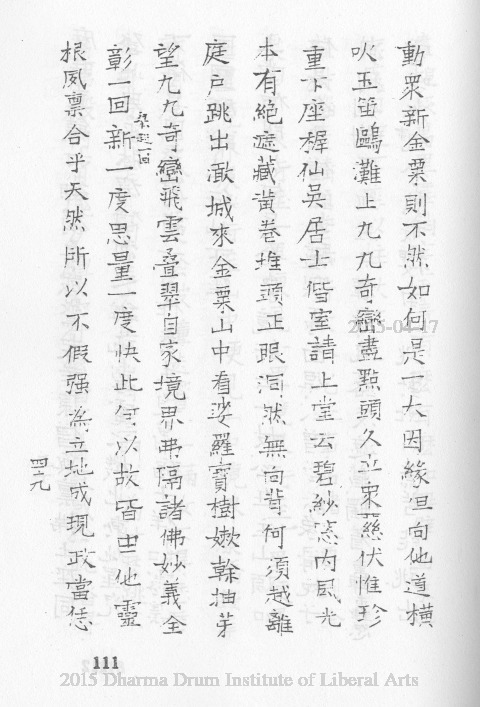 動眾新金粟則不然如何是一大因緣但向他道橫
吹玉笛鷗灘上九九奇巒盡點頭久立眾慈伏惟珍
重下座樨仙吳居士偕室請上堂云碧紗窓内風光
本有絕遮藏黃卷堆頭正眼洞然無向背何須越離
庭戶跳出澉城來金粟山中看娑羅寶樹嫩榦抽芽
望九九奇巒飛雲叠翠自家境界弗隔諸佛妙義全
彰一回新一度思量一度快此所以故皆由他靈
舉起一回
根夙稟合乎天然所以不假强為立地成現政當恁
四十九
111
2015-04-17
2015 Dharma Drum Institute of Liberal Arts